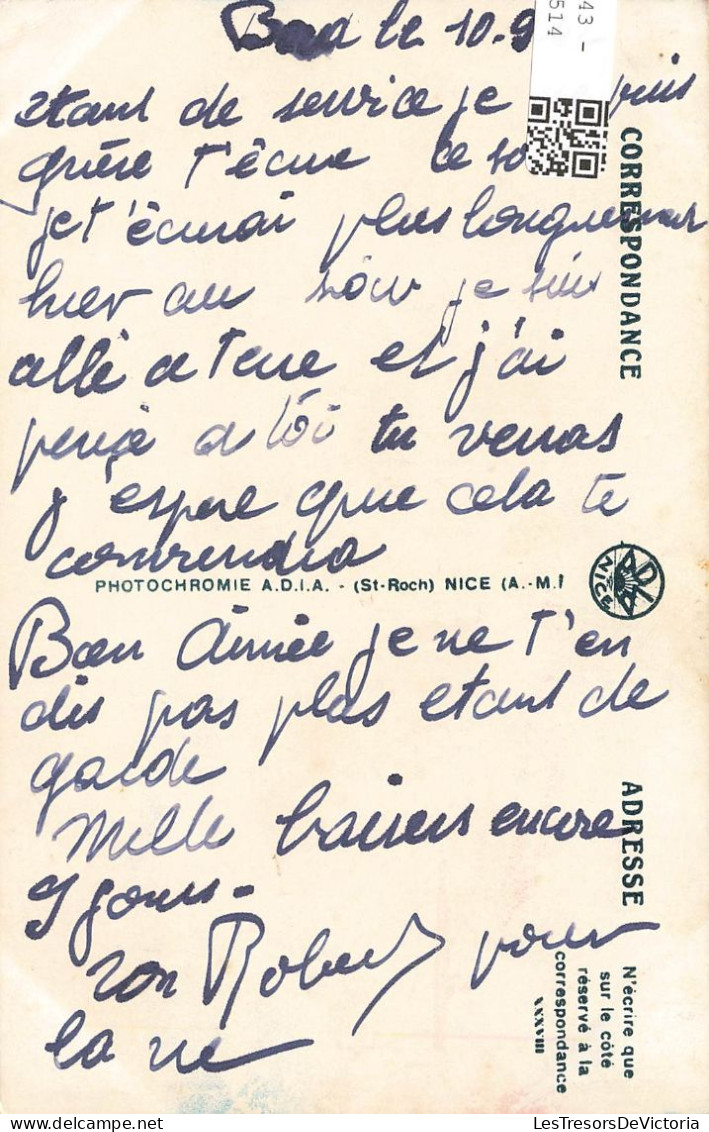 le 10-9
43 -
514
etant de service je puis
guère t'écrire ce
je t'écrirai plus longuement
hier au soir je suis
allé a terre et j'ai
pensé a toi tu verras
j'espere que cela te
conviendra
PHOTOCHROMIE A.D.I.A. - (St-Roch) NICE (A.-M.)
ADIA NICE
Bon Aimée je ne t'en
dis pas plus etant de
garde
Mille baisers encore
9 jours -
ton Robert pour
la vie
CORRESPONDANCE
ADRESSE
N'écrire que
sur le côté
réservé à la
correspondance
XXXVIII
LesTresorsDeVictoria